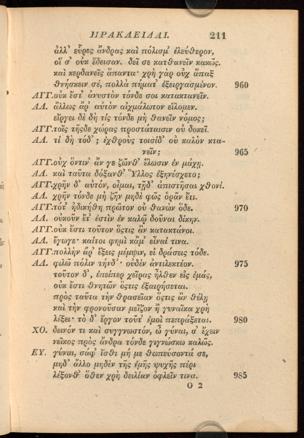 ΗΡΑΚΛΕΙΔΑΙ. 211
ἀλλ' εὗρες ἄνδρας καὶ πόλισμ' ἐλεύθερον,
οἵ σ' οὐκ ἔδεισαν. δεῖ σε κατθανεῖν κακῶς.
καὶ κερδανεῖς ἅπαντα· χρὴ γὰρ οὐχ ἅπαξ
θνήσκειν σέ, πολλὰ πήματ' ἐξειργασμένον. 960
ΑΓΓ. οὐκ ἔστ' ἀνυστὸν τόνδε σοι κατακτανεῖν.
ΑΛ. ἄλλως ἄρ' αὐτὸν αἰχμάλωτον εἵλομεν.
εἴργει δὲ δὴ τίς τόνδε μὴ θανεῖν νόμος;
ΑΓΓ. τοῖς τῆσδε χώρας προστάταισιν οὐ δοκεῖ.
ΑΛ. τί δὴ τόδ'; ἐχθροὺς τοισίδ' οὐ καλὸν κτα-
νεῖν; 965
ΑΓΓ. οὐχ ὅντιν' ἄν γε ζῶνθ' ἕλωσιν ἐν μάχῃ.
ΑΛ. καὶ ταῦτα δόξανθ' Ὕλλος ἐξηνέσχετο;
ΑΓΓ. χρῆν δ' αὐτόν, οἶμαι, τῇδ' ἀπιστῆσαι χθονί.
ΑΛ. χρῆν τόνδε μὴ ζῆν μηδὲ φῶς ὁρᾶν ἔτι.
ΑΓΓ. τότ' ἠδικήθη πρῶτον οὐ θανὼν ὅδε. 970
ΑΛ. οὐκοῦν ἔτ' ἐστὶν ἐν καλῷ δοῦναι δίκην.
ΑΓΓ. οὐκ ἔστι τοῦτον ὅστις ἂν κατακτάνοι.
ΑΛ. ἔγωγε· καίτοι φημὶ κἄμ' εἶναί τινα.
ΑΓΓ. πολλὴν ἄρ' ἕξεις μέμψιν, εἰ δράσεις τόδε.
ΑΛ. φιλῶ πόλιν τήνδ'· οὐδὲν ἀντιλεκτέον. 975
τοῦτον δ', ἐπείπερ χεῖρας ἦλθεν εἰς ἐμάς,
οὐκ ἔστι θνητῶν ὅστις ἐξαιρήσεται.
πρὸς ταῦτα τὴν θρασεῖαν ὅστις ἂν θέλῃ
καὶ τὴν φρονοῦσαν μεῖζον ἢ γυναῖκα χρὴ
λέξει· τὸ δ' ἔργον τοῦτ' ἐμοὶ πεπράξεται. 980
ΧΟ. δεινόν τι καὶ συγγνωστόν, ὦ γύναι, σ' ἔχειν
νεῖκος πρὸς ἄνδρα τόνδε γιγνώσκω καλῶς.
ΕΥ. γύναι, σάφ' ἴσθι μή με θωπεύσοντά σε,
μηδ' ἄλλο μηδὲν τῆς ἐμῆς ψυχῆς πέρι
λέξονθ' ὅθεν χρὴ δειλίαν ὀφλεῖν τινα. 985
O 2